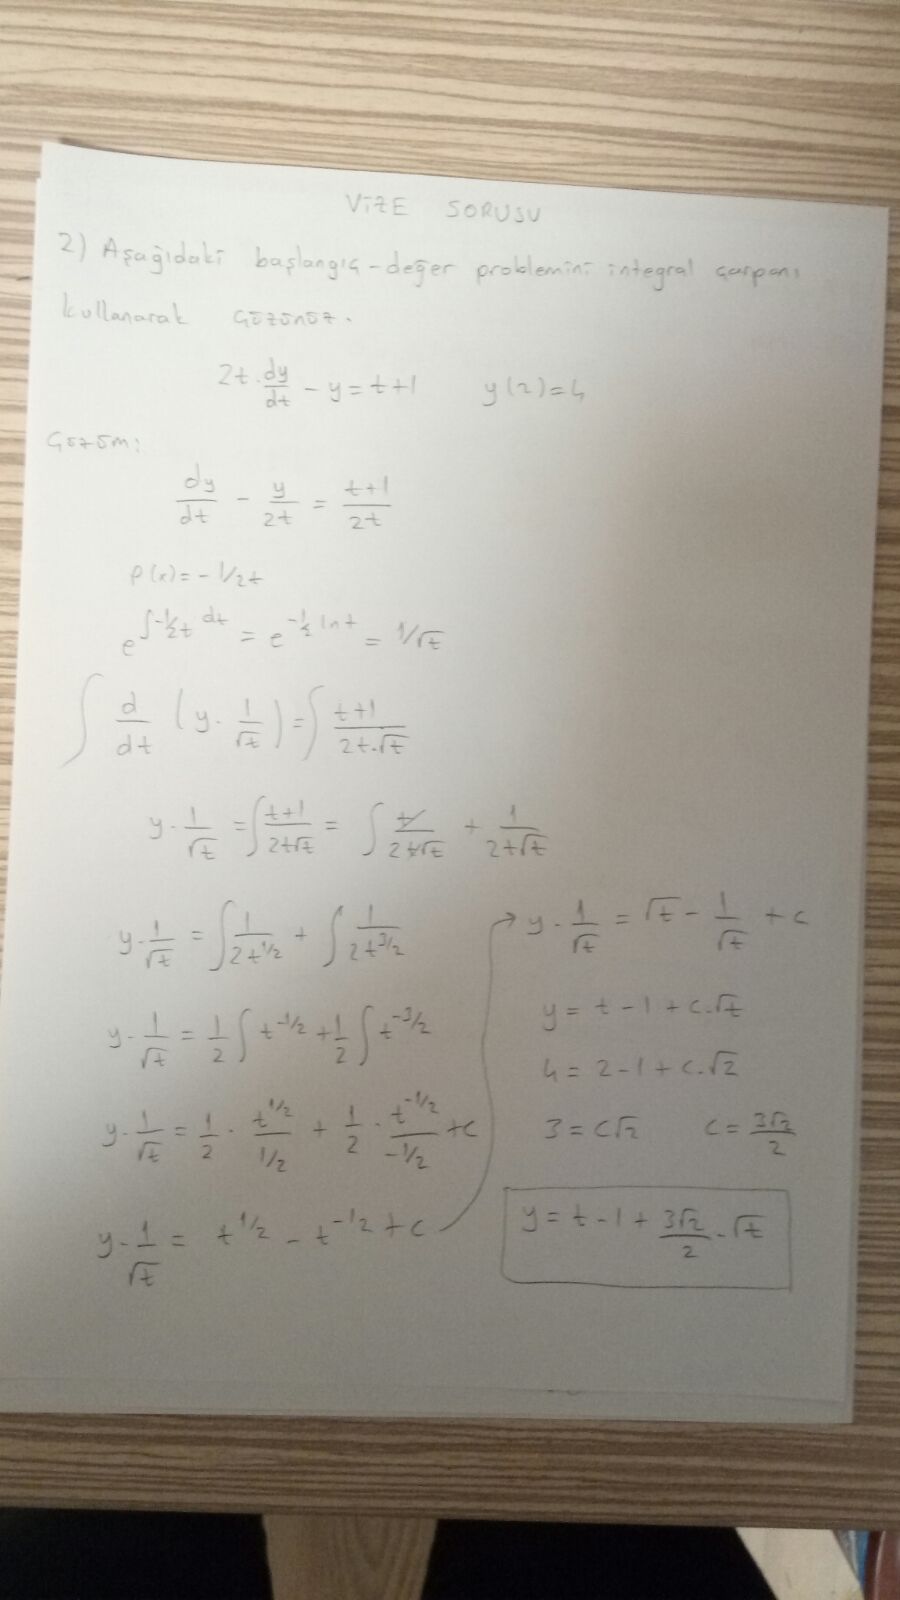 VİZE SORUSU
2) Aşağıdaki başlangıç-değer problemini integral çarpanı
kullanarak çözünüz.
2t.dy/dt - y = t+1    y(2)=4
Çözüm:
dy/dt - y/2t = (t+1)/2t
P(x) = -1/2t
e^∫-1/2t dt = e^-1/2 ln t = 1/√t
∫ d/dt (y. 1/√t) = ∫ (t+1)/(2t.√t)
y. 1/√t = ∫ (t+1)/(2t√t) = ∫ t/(2t√t) + 1/(2t√t)
y. 1/√t = ∫ 1/(2t^1/2) + ∫ 1/(2t^3/2)
y. 1/√t = 1/2 ∫ t^-1/2 + 1/2 ∫ t^-3/2
y. 1/√t = 1/2 . t^1/2/(1/2) + 1/2 . t^-1/2/(-1/2) + c
y. 1/√t = t^1/2 - t^-1/2 + c
→ y. 1/√t = √t - 1/√t + c
y = t - 1 + c.√t
4 = 2 - 1 + c.√2
3 = c√2    c = 3√2/2
y = t - 1 + 3√2/2 . √t